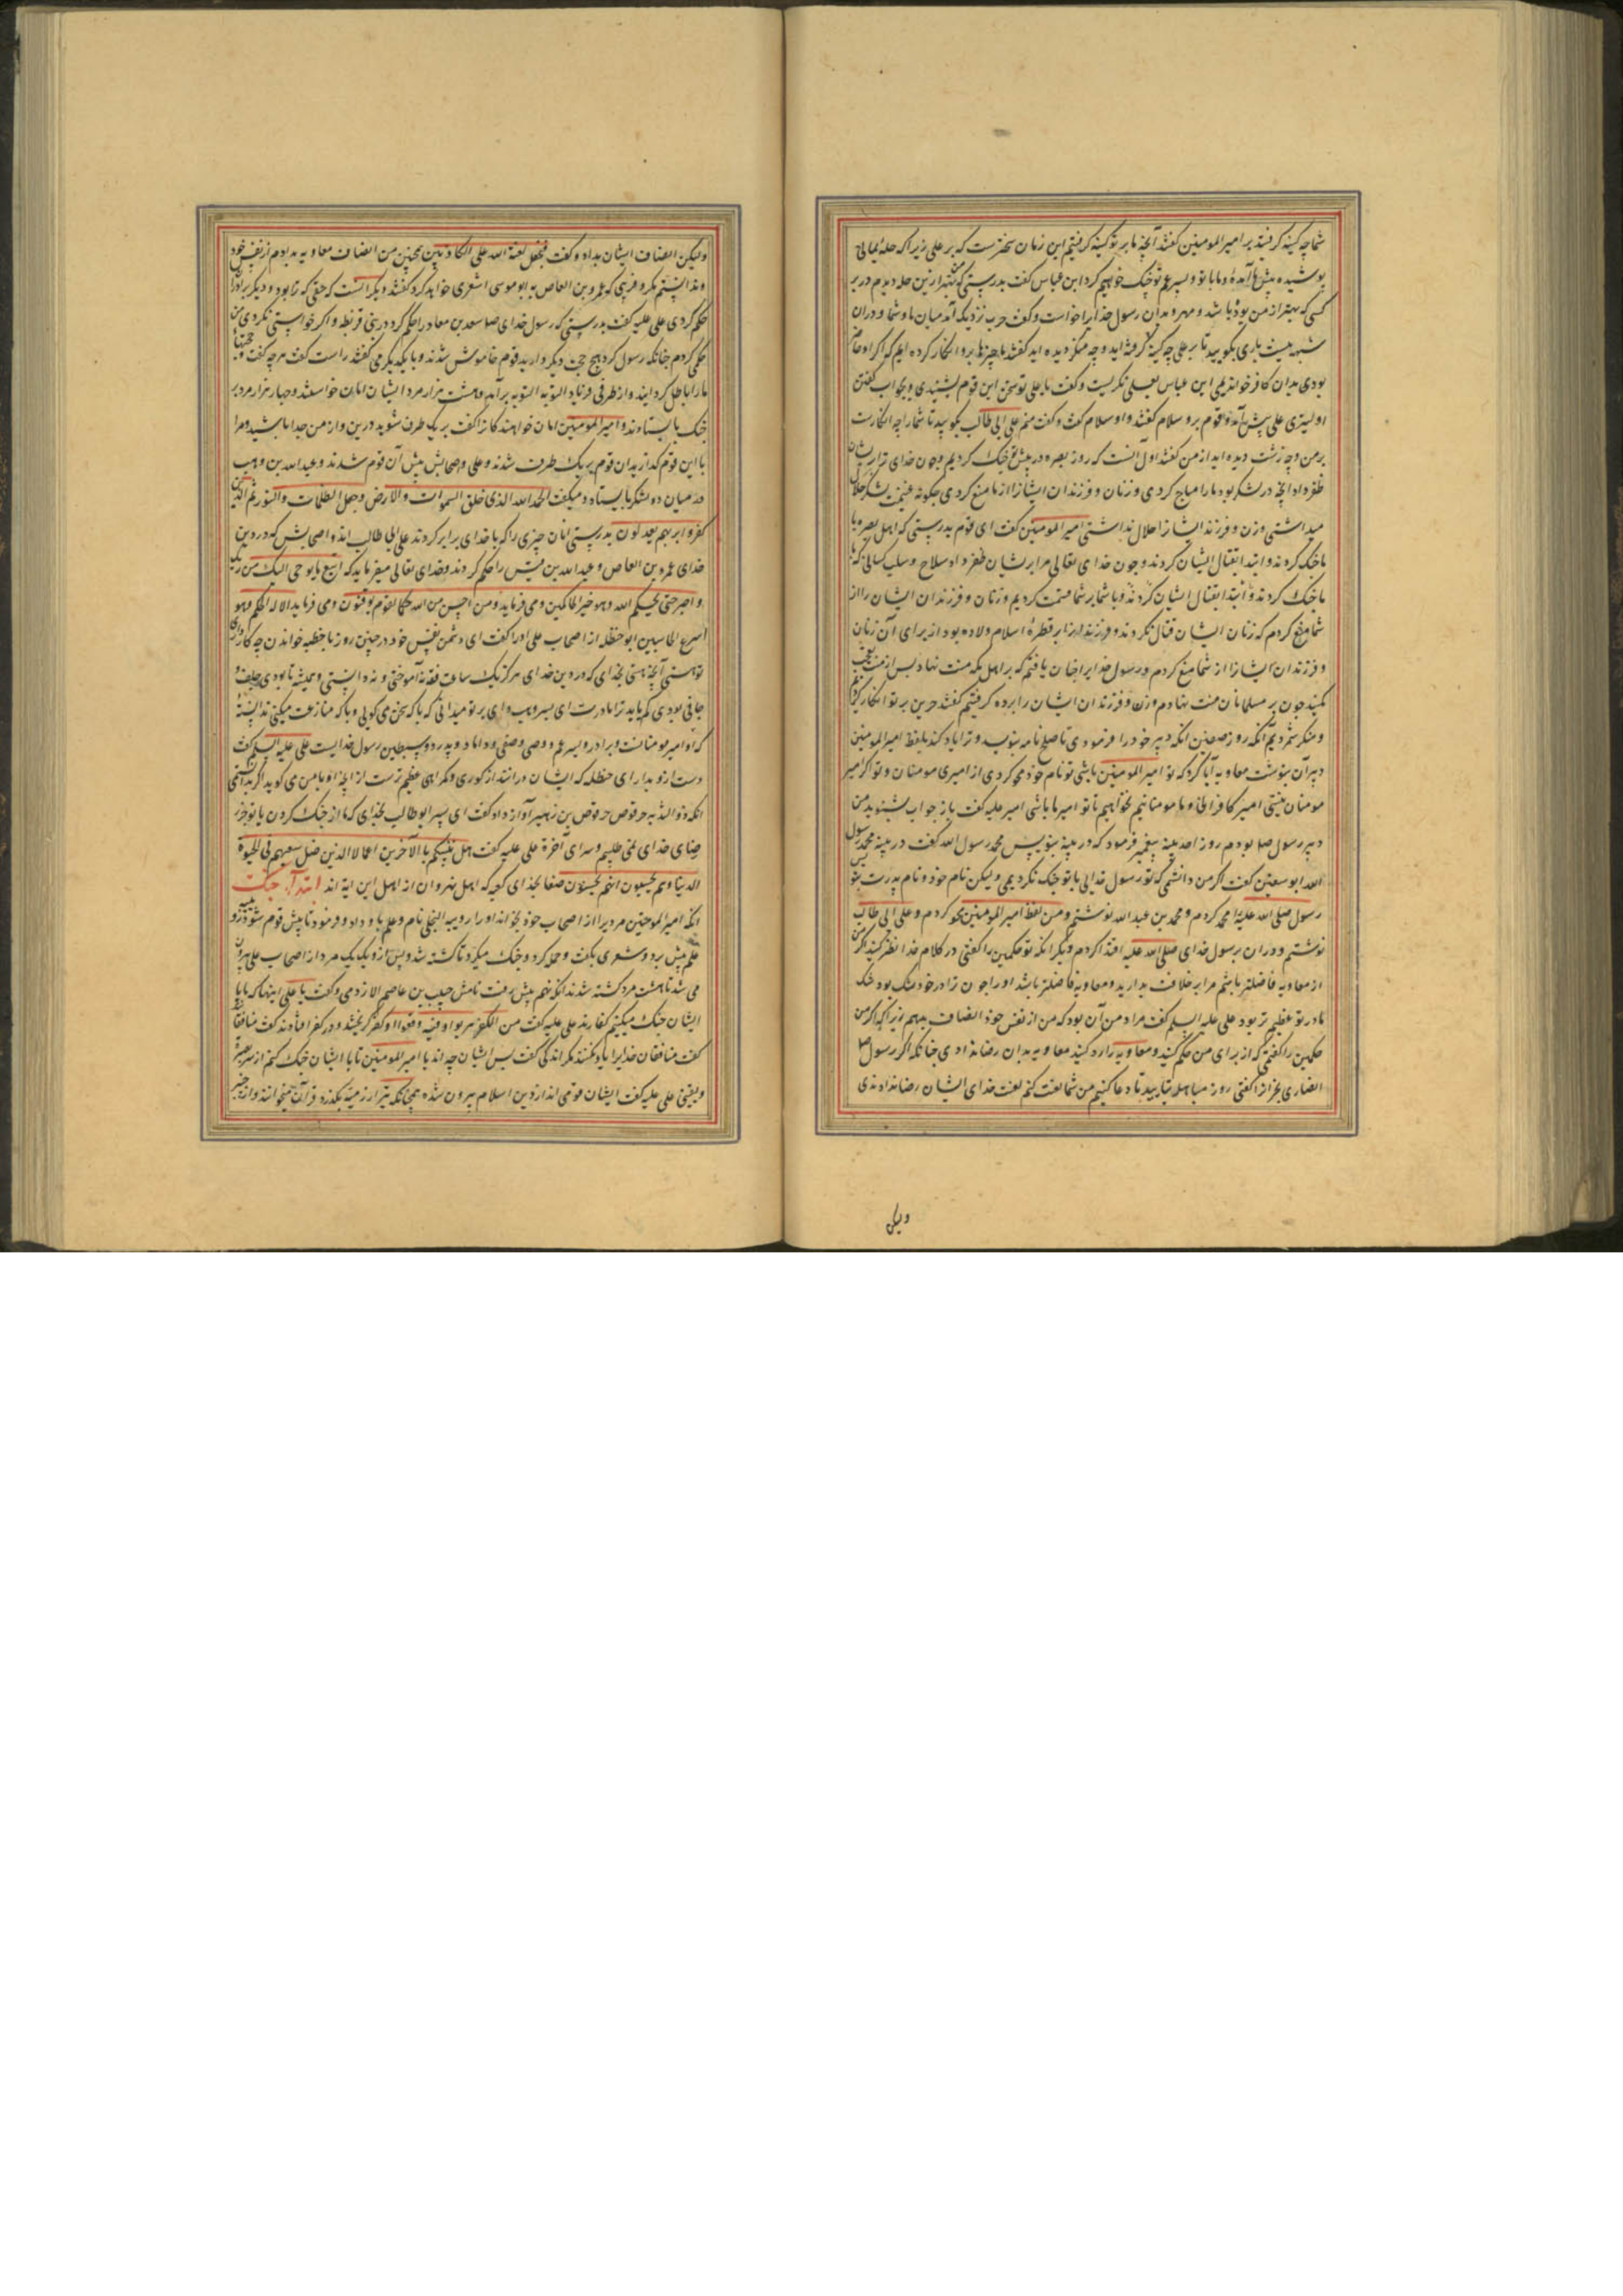 شما چه کینه گرفتید بر امیرالمومنین گفتند آنچه ما بر تو کینه گرفتیم این زمان سخترست که بر علی زیرا که حله یمانی
پوشیده پیش ما آمده و ما با تو و پسر عم تو جنک خواهیم کرد ابن عباس گفت بدرستی که بهتر ازین حله دیدم در بر
کسی که بهتر از من بود باشد و مهرو بدان رسول خدا را خواست و گفت حرب نزدیک آمد میان ما و شما و در ان
شبهه نیست باری بگویید تا بر علی چه کینه گرفته اید و چه منکر دیده اید گفتند ما چیزها برو انکار کرده ایم که اگر او حاضر
بودی بدان کافر خواندیمی ابن عباس بعلی نگریست و گفت یا علی تو سخن این قوم بشنیدی و بجواب گفتن
اولیتری علی پیش آمد و قوم برو سلام گفتند و او سلام گفت و گفت منم علی ابی طالب بگویید تا شما را چه انکارست
بر من و چه زشت دیده اید از من گفتند اول آنست که روز بصره در پیش تو جنک کردیم و چون خدای ترا بریشان
ظفر داد آنچه در لشکر بود ما را مباح کردی و زنان و فرزندان ایشانرا از ما منع کردی چگونه غنیمت لشکر حلال
میداشتی و زن و فرزند ایشانرا حلال نداشتی امیرالمومنین گفت ای قوم بدرستی که اهل بصره با
ما جنک کردند و ابتدا بقتال ایشان کردند و چون خدای تعالی مرا بریشان ظفر داد سلاح و سلب کسانی که با
ما جنک کردند و ابتدا بقتال ایشان کردند و با شما بر شما قسمت کردیم و زنان و فرزندان ایشان را از
شما منع کردم که زنان ایشان قتال نکردند و فرزندان بر فطرة اسلام ولاده بود از برای آن زنان
و فرزندان ایشانرا از شما منع کردم و رسول خدا را چنان یافتم که بر اهل مکه منت نهاد پس از من تعجب
مکنید چون بر مسلمانان منت نهادم و زن و فرزندان ایشان را برده نگرفتم گفتند درین بر تو انکار کردیم
و منکر شمردیم آنکه روز صفین آنکه دبیر خود را فرمودی تا صلح نامه بنویسد و ترا یاد کند بلفظ امیرالمومنین
دبیر آن بنوشت معاویه آبا کرد که تو امیرالمومنین باشی تو نام خود محو کردی از امیری مومنان و تو اگر امیر
مومنان نیستی امیر کافرانی و ما مومنانیم نخواهیم تا تو امیر ما باشی امیر علیه گفت باز جواب بشنوید من
دبیر رسول صلعم بودم روز احدیبیه پیغمبر فرمود که دبیر بنویس محمد رسول الله گفت محمد رسول
الله ابو سفین گفت اگر من دانستمی که تو رسول خدایی با تو جنک نکردیمی ولیکن نام خود و نام پدرت بنویس
رسول صلی الله علیه را محو کردم و محمد بن عبد الله نوشتم و من لفظ امیرالمومنین محو کردم و علی ابی طالب
نوشتم و در ان برسول خدای صلی الله علیه اقتدا کردم دیگر آنکه تو حکمین را گفتی در کلام خدا نظر کنید اگر من
از معاویه فاضلتر باشم مرا بر خلافت بدارید و معاویه فاضلتر باشد او را چون ترا در خود شک بود شک
ما در تو عظیم تر بود علی علیه السلم گفت مراد من آن بود که من از نفس خود انصاف بدهم زیرا که اگر من
حکمین را گفتمی که از برای من حکم کنید و معاویه را رد کنید معاویه بدان رضا ندادی چنانکه اگر رسول صلعم
نصاری نجران را گفتی روز مباهله بیایید تا دعا کنیم من شما لعنت کنم لعنت خدای ایشان رضا ندادندی
ولیکن
ولیکن انصاف ایشان بداد و گفت فنجعل لعنة الله علی الکاذبین همچنین من انصاف معاویه بدادم از نفس خود
و ندانستم مکر و فریبی که عمرو بن العاص به ابو موسی اشعری خواهد کرد گفتند دیگر آنست که حقی که ترا بود و دیگر برا
حکم کردی علی علیه گفت بدرستی که رسول خدای صلعم سعد بن معاذ را حکم کرد در بنی قریظه و اگر خواستی نکردی من
حکمی کردم چنانکه رسول کرد هیچ حجت دیگر دارید قوم خاموش شدند و با یکدیگر می گفتند راست گفت هر چه گفت
ما را باطل کردانید و از طرفی فریاد التوبه التوبه برآمد و هشت هزار مرد ایشان امان خواستند و چهار هزار مرد بر
جنک بایستادند و امیرالمومنین امان خواهندکانرا گفت بر یک طرف شوید درین و از من جدا باشید و مرا
با این قوم گذارید ان قوم بر یک طرف شدند و علی و صحابش پیش آن قوم شدند و عبدالله بن وهب
در میان دو لشکر بایستاد و میگفت الحمد لله الذی خلق السموات والارض وجعل الظلمات والنور ثم الذین
کفروا بربهم یعدلون بدرستی انان چیزی را که با خدای برابر کردند علی ابی طالب اند و اصحابش که در دین
خدای عمرو بن العاص و عبدالله بن قیس را حکم کردند و خدای تعالی میفرماید که اتبع ما یوحی الیک من ربک
واصبر حتی یحکم الله وهو خیر الحاکمین و می فرماید و من احسن من الله حکما لقوم یوقنون و می فرماید الا له الحکم وهو
اسرع الحاسبین ابو حنظله از اصحاب علی او را گفت ای دشمن نفس خود در چنین روز با خطبه خواندن چه کار داری
تو هستی آنچه هستی بخدای که در دین خدای هرگز یک ساعت فقه نه آموختی و نه دانستی و همیشه تا بودی جلف و
جافی بودی گم باید ترا مادرت ای پسر وهب وای بر تو میدانی که با که سخن می گویی و با که منازعت میکنی ندانسته
که او امیر مومنانست و برادر و پسر عم و وصی و صفی و داماد و پدر دو سبطین رسول خدایست علی علیه السلم گفت
دست ازو بدار ای حنظله که ایشان در انند از کوری و گمراهی عظیم ترست از آنچه او با من می گوید
آنکه ذو الثدیه حرقوص حرقوص بن زهیر آواز داد گفت ای پسر ابو طالب بخدای که ما از جنک کردن با تو جز
رضای خدای نمی طلبیم و سرای آخرة علی علیه گفت هل ننبئکم بالاخرین اعمالا الذین ضل سعیهم فی الحیوة
الدنیا وهم یحسبون انهم یحسنون صنعا بخدای کعبه که اهل نهروان از اهل این آیه اند ابتدا جنک
آنکه امیرالمومنین مردیرا از اصحاب خود بخواند او را رویبه البجلی نام و علم باو داد و فرمود تا پیش قوم شو او
علم پیش برد و شعری بگفت و حمله کرد و جنک میکرد تا کشته شد و پس ازو یک یک مرد از اصحاب علی بیرون
می شد تا هشت مرد کشته شدند آنکه نهم پیش رفت نامش حبیب بن عاصم الازدی و گفت یا علی اینها که ما با
ایشان جنک میکنیم کفارند علی علیه گفت من الکفر هربوا و فیه وقعوا از کفر گریختند و در کفر افتادند گفت منافقند
گفت منافقان خدایرا یاد نکنند مگر اندکی گفت پس ایشان چه اند یا امیرالمومنین تا با ایشان جنک کنم از سر بصیرة
و یقینی علی علیه گفت ایشان قومی اند از دین اسلام بیرون شده همچنانکه تیر از رمیه بگذرد قرآن میخوانند و از